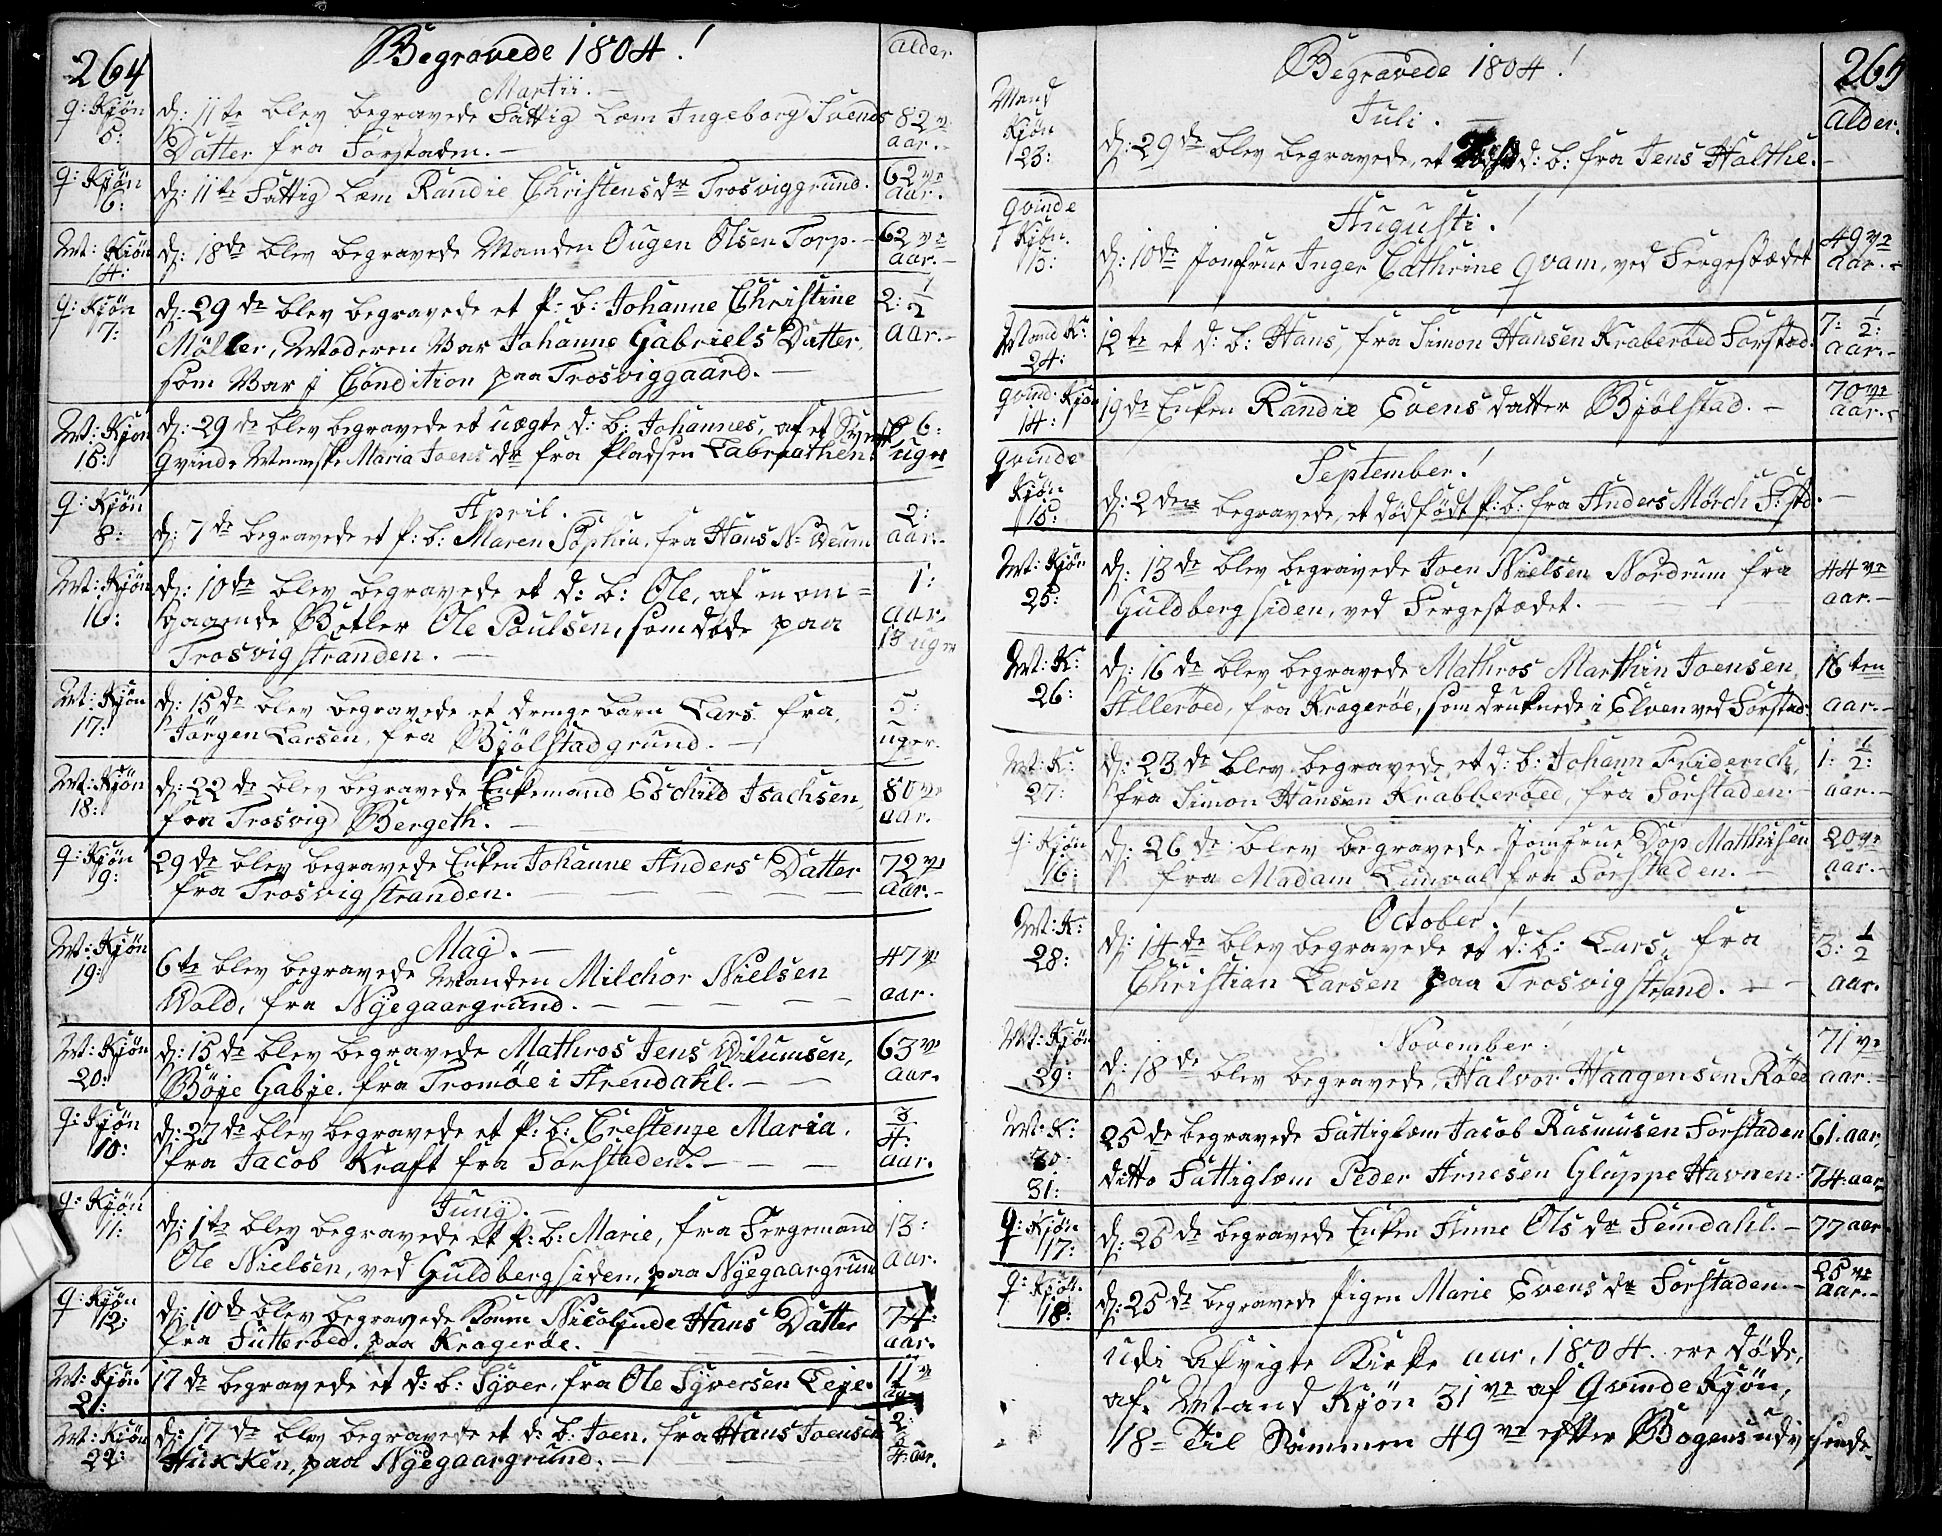 264
Begravede 1804!
Alder
Martii.
q: Kjøn 5: d: 11te blev begravede Fattig Lem Ingeborg Svends 82ve
Datter fra Forstaden. — aar. —
q: Kjøn 6: d: 11te Fattig Lem Randie Christensdr Trosviggrund. 62ve aar.
M: Kjøn 14: d: 18de blev begravede Manden Ougen Olsen Torp. — 62ve aar. —
q: Kjøn 7: d: 29de blev begravede et p: b: Johanne Christine 2: 1/2
Møller, Moderen Var Johanne Gabriels Datter, aar. —
som Var j Condition paa Trosviggaard. —
M: Kjøn 15: d: 29de blev begravede et uægte d: b: Johannes, af et Svensk 6:
qvinde Menneske Maria Joens dr fra Pladsen Labrathen. uger
April. —
q: Kjøn 8: d: 7de begravede et p: b: Maren Sophia, fra Hans N: 2: aar. —
M: Kjøn 16: d: 10de blev begravede et d: b: Ole, af en om= 1:
gaaende Betler Ole Poulsen, som døde paa aar.
Trosvigstranden. — 13 uger
M: Kjøn 17: d: 15de blev begravede et drenge barn Lars fra 5:
Jørgen Larsen, fra Bjølstadgrund. — uger.
M: Kjøn 18: d: 22de blev begravede Enkemand Eschild Isachsen, 80ve
fra Trosvig Bergeth. — aar.
q: Kjøn 9: 29de blev begravede Enken Johanne Anders Datter 72ve
fra Trosvigstranden. — aar. —
Maj. —
M: Kjøn 19: 6te blev begravede Manden Milchor Nielsen 47ve
Wold, fra Nyegaargrund. — aar.
M: Kjøn 20: d: 15de blev begravede Mathros Jens Wilumsen, 63ve
Bøje Gabje. fra Tromøe i Arendahl. — aar.
q: Kjøn 10: d: 27de blev begravede et p: b: Crestenze Maria. 3/4:
fra Jacob Kraft fra Forstaden. — aar.
Junij. —
q: Kjøn 11: d: 1te blev begravede et p: b: Marie, fra Fergemand 13:
Ole Nielsen, ved Guldbergsiden, paa Nyegaargrund aar.
q: Kjøn 12: d: 10de blev begravede Nicolinde Hans Datter 74:
fra Sutterøed. paa Kragerøe. — aar.
M: Kjøn 21: 17de begravede et d: b: Syver, fra Ole Syversen Leje. 11
M: Kjøn 22: d: 17de blev begravede et d: b: Joen, fra Hans Joensen 2:
Hukken, paa Nyegaargrund. — aar.
265
Begravede 1804!
Alder.
Juli. —
Mand Kjøn 23: d: 29de blev begravede, et d: b: fra Jens Holthe. —
Augusti!
qvinde Kjøn. 13: d: 10de Jomfrue Inger Cathrine Qvam, ved Fergestædet 49ve aar. —
Mand K: 24: 12te et d: b: Hans, fra Simon Hansen Kraberøed Forstad. 7: 1/2: aar. —
qvind: Kjøn 14: 19de Enken Randie Evens datter Bjølstad. — 70ve aar. —
September!
qvinde Kjøn 15: d: 2den begravede, et dødfødt p: b: fra Anders Mørch F: std. —
M: Kjøn 25: d: 13de blev begravede Joen Nielsen Nordrum fra 44ve
Guldbergsiden, ved Fergestædet. — aar. —
M: K: 26: d: 16de blev begravede Mathros Marthin Joensen, 16ten
Allerøed, fra Kragerøe, som druknede i Elven ved Forstad: aar. —
M: K: 27: d: 23de blev begravede et d: b: Johann Friderich, 1: 1/2:
fra Simon Hansen Krabberøed, fra Forstaden. — aar. —
q: Kjøn 16: d: 26de blev begravede Jomfrue Dop Matthisen 20ve
fra Madam fra Forstaden. — aar. —
October!
M: K: 28: d: 14de blev begravede et d: b: Lars, fra 3: 1/2
Christian Larsen paa Trosvigstrand. — aar.
November!
M: Kjøn 29: d: 18de blev begravede, Halvor Haagensen Røed 71ve aar. —
M: K: 30: 25de begravede Fattiglem Jacob Rasmusen Forstaden 61. aar.
31: ditto Fattiglem Peder Arnesen Gluppe Havnen: 74. aar
q: Kjøn 17: d: 25de begravede Enken Anne Ols dr Semdahl. — 77 aar.
q: Kjøn. 18: d: 25de begravede pigen Marie Evens dr Forstaden. — 25ve aar. —
udi Afvigte Kirke aar, 1804. ere døde,
af Mand Kjøn 31ve af Qvinde Kjøn,
18= Til Sammen 49ve efter Bogens udvisende.